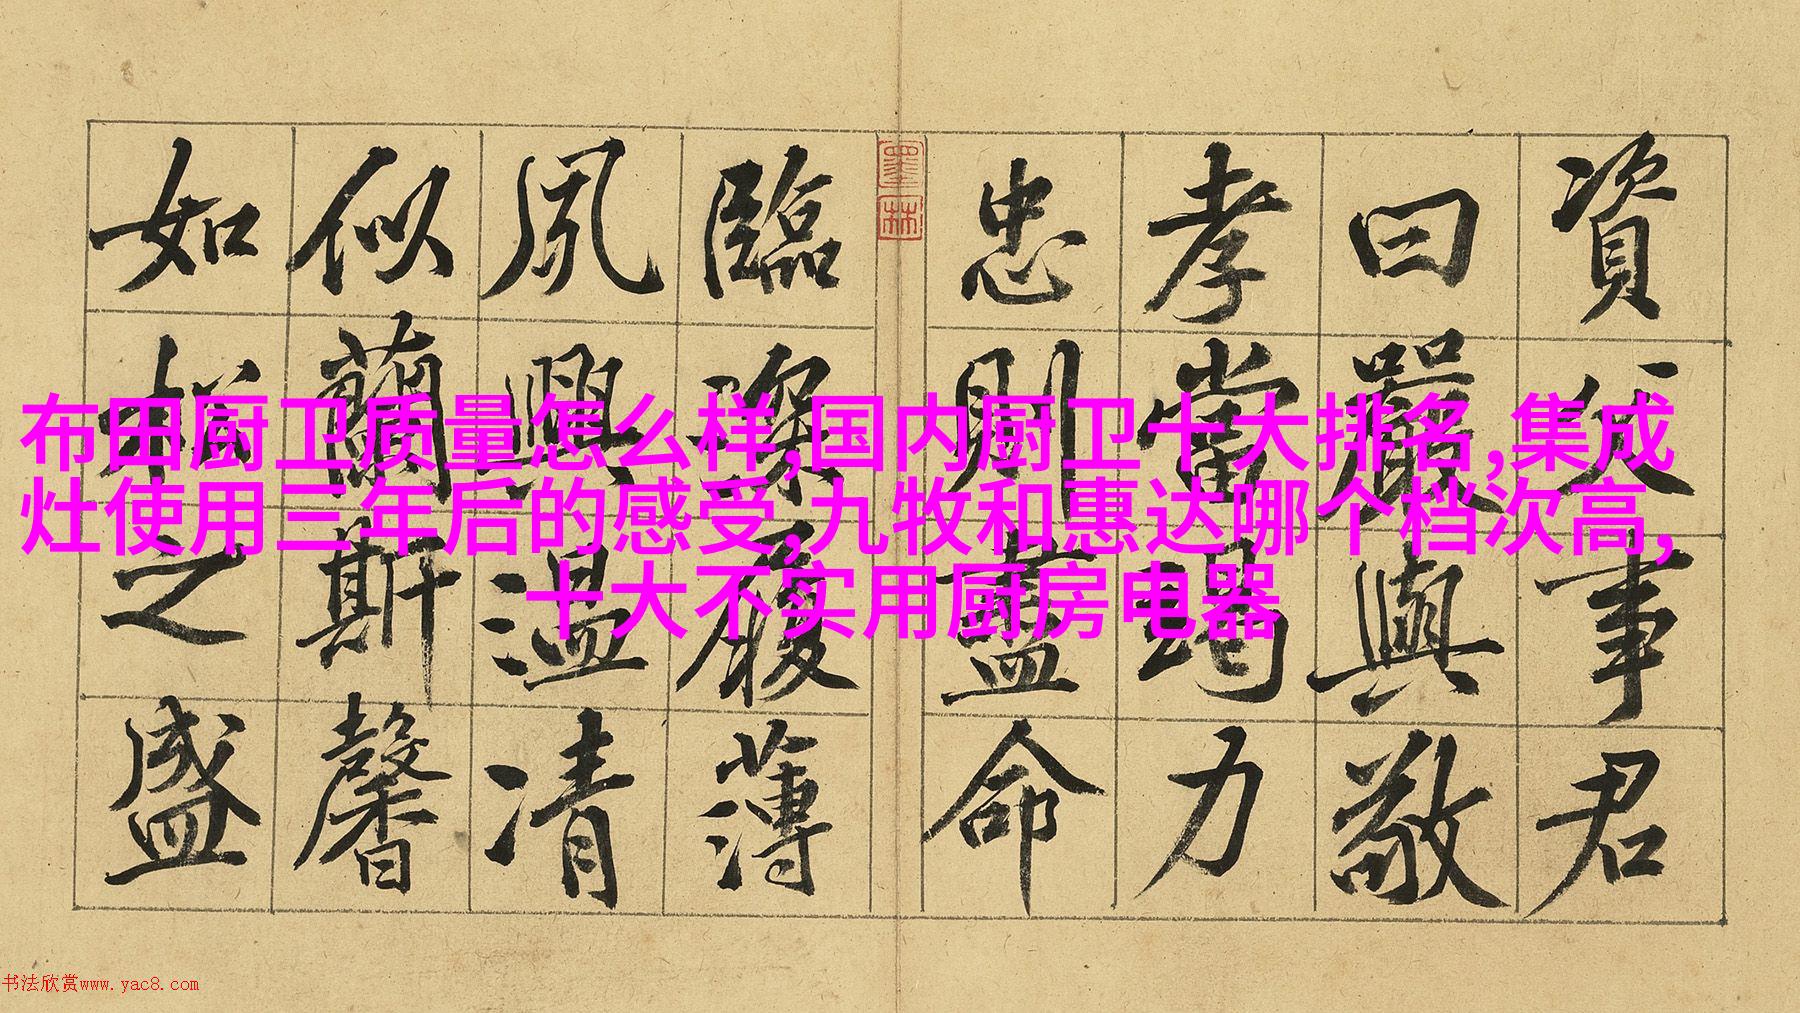 布田厨卫质量怎么样,国内厨卫十大排名,集成
灶使用三年后的感受,九牧和惠达哪个档次高,
十大不实用厨房电器
資父事君
曰嚴與敬
孝當竭力
忠則盡命
臨深履薄
夙興温凊
似蘭斯馨
如松之盛
墨林
书法欣赏www.yac8.com